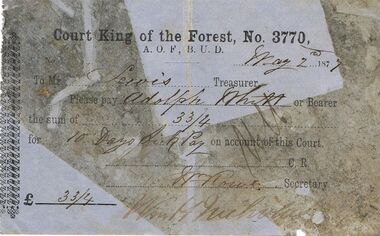 Court King of the Forest, No. 3770,
A. O. F., B. U. D.
May 2nd 1877
To Mr Lewis Treasurer
Please pay Adolph or Bearer
the sum of 33/4
for 10 Days Sick Pay on account of this Court.
C. R.
W Rowe Secretary
£ 33/4